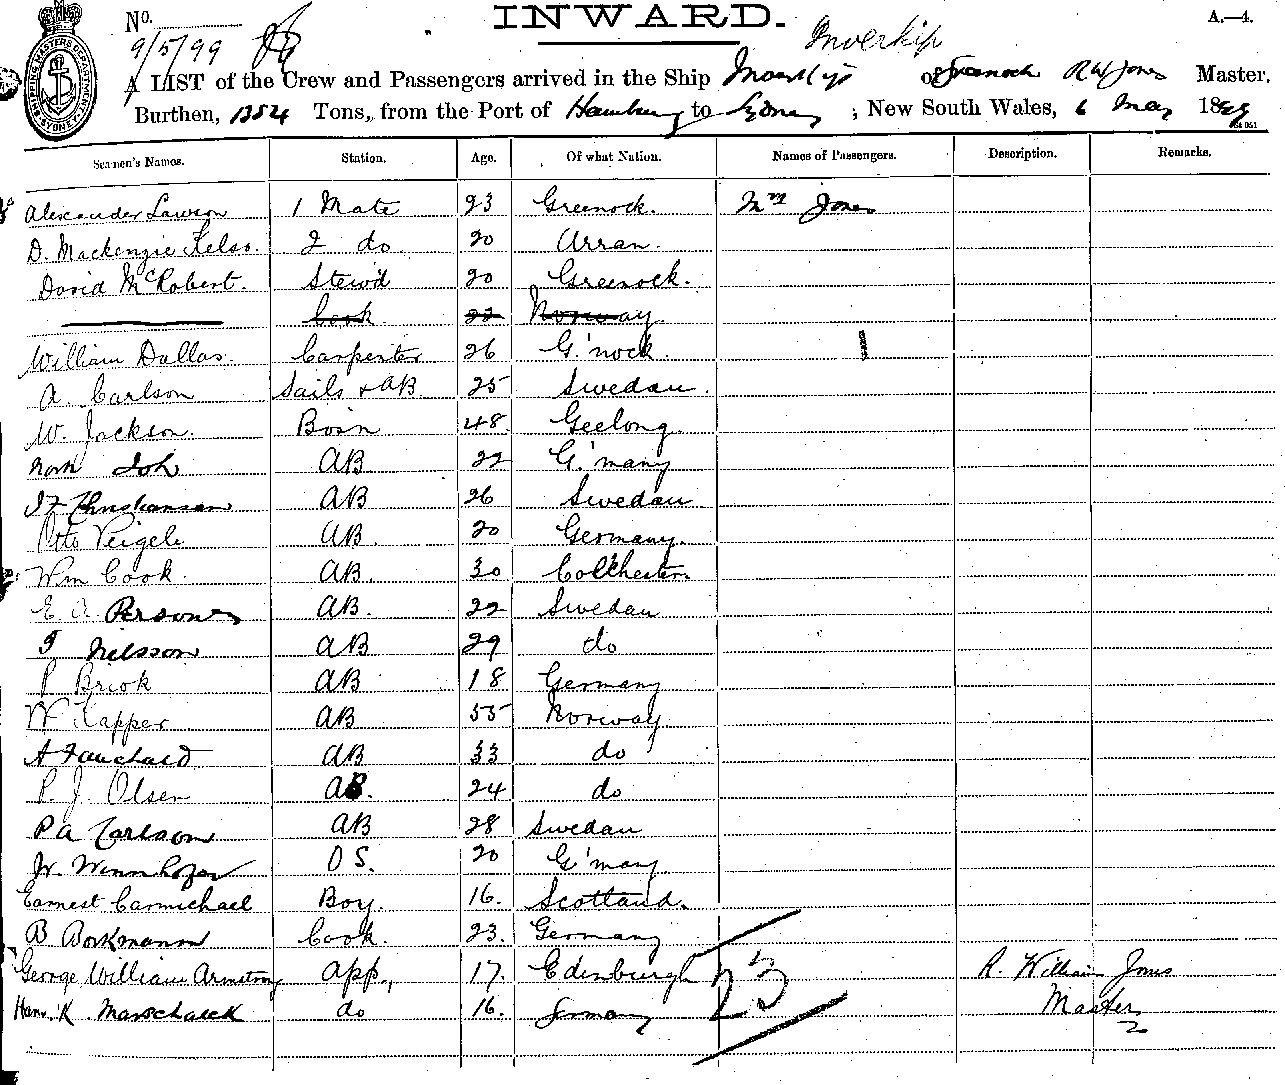 INWARD.
A.—4.
No.
9/5/99
Inverkip
A LIST of the Crew and Passengers arrived in the Ship Inverkip of Greenock R W Jones Master,
Burthen, 1354 Tons, from the Port of Hamburg to Sydney ; New South Wales, 6 May 1899
Seamen's Names. Station. Age. Of what Nation. Names of Passengers. Description. Remarks.
Alexander Lawson 1 Mate 23 Greenock. Mrs Jones
D. Mackenzie Kelso. 2 do. 20 Arran.
David McRobert. Stew'd 20 Greenock.
Cook 22 Norway
William Dallas. Carpenter 26 G'nock
A. Carlson Sails & AB. 25 Swedan.
W. Jackson. Bosn 48. Geelong.
AB 22 G'many
Christiansen AB 26 Swedan
Otto Veigele AB. 20 Germany.
Wm Cook. AB. 30 Colchester.
E. A. Persson AB. 22 Swedan
Nilsson AB 29 do
P Briok AB 18 Germany
W Kapper AB 55 Norway.
A Fauchald AB 33 do
P. J. Olsen AB. 24 do
P A Carlson AB 28 Swedan
OS. 20 G'many
Earnest Carmichael Boy. 16. Scotland.
B Borkmann Cook. 23. Germany
George William Armstrong app., 17. Edinburgh 23 R. William Jones
Hans K Marschalck do 16. Germany Master